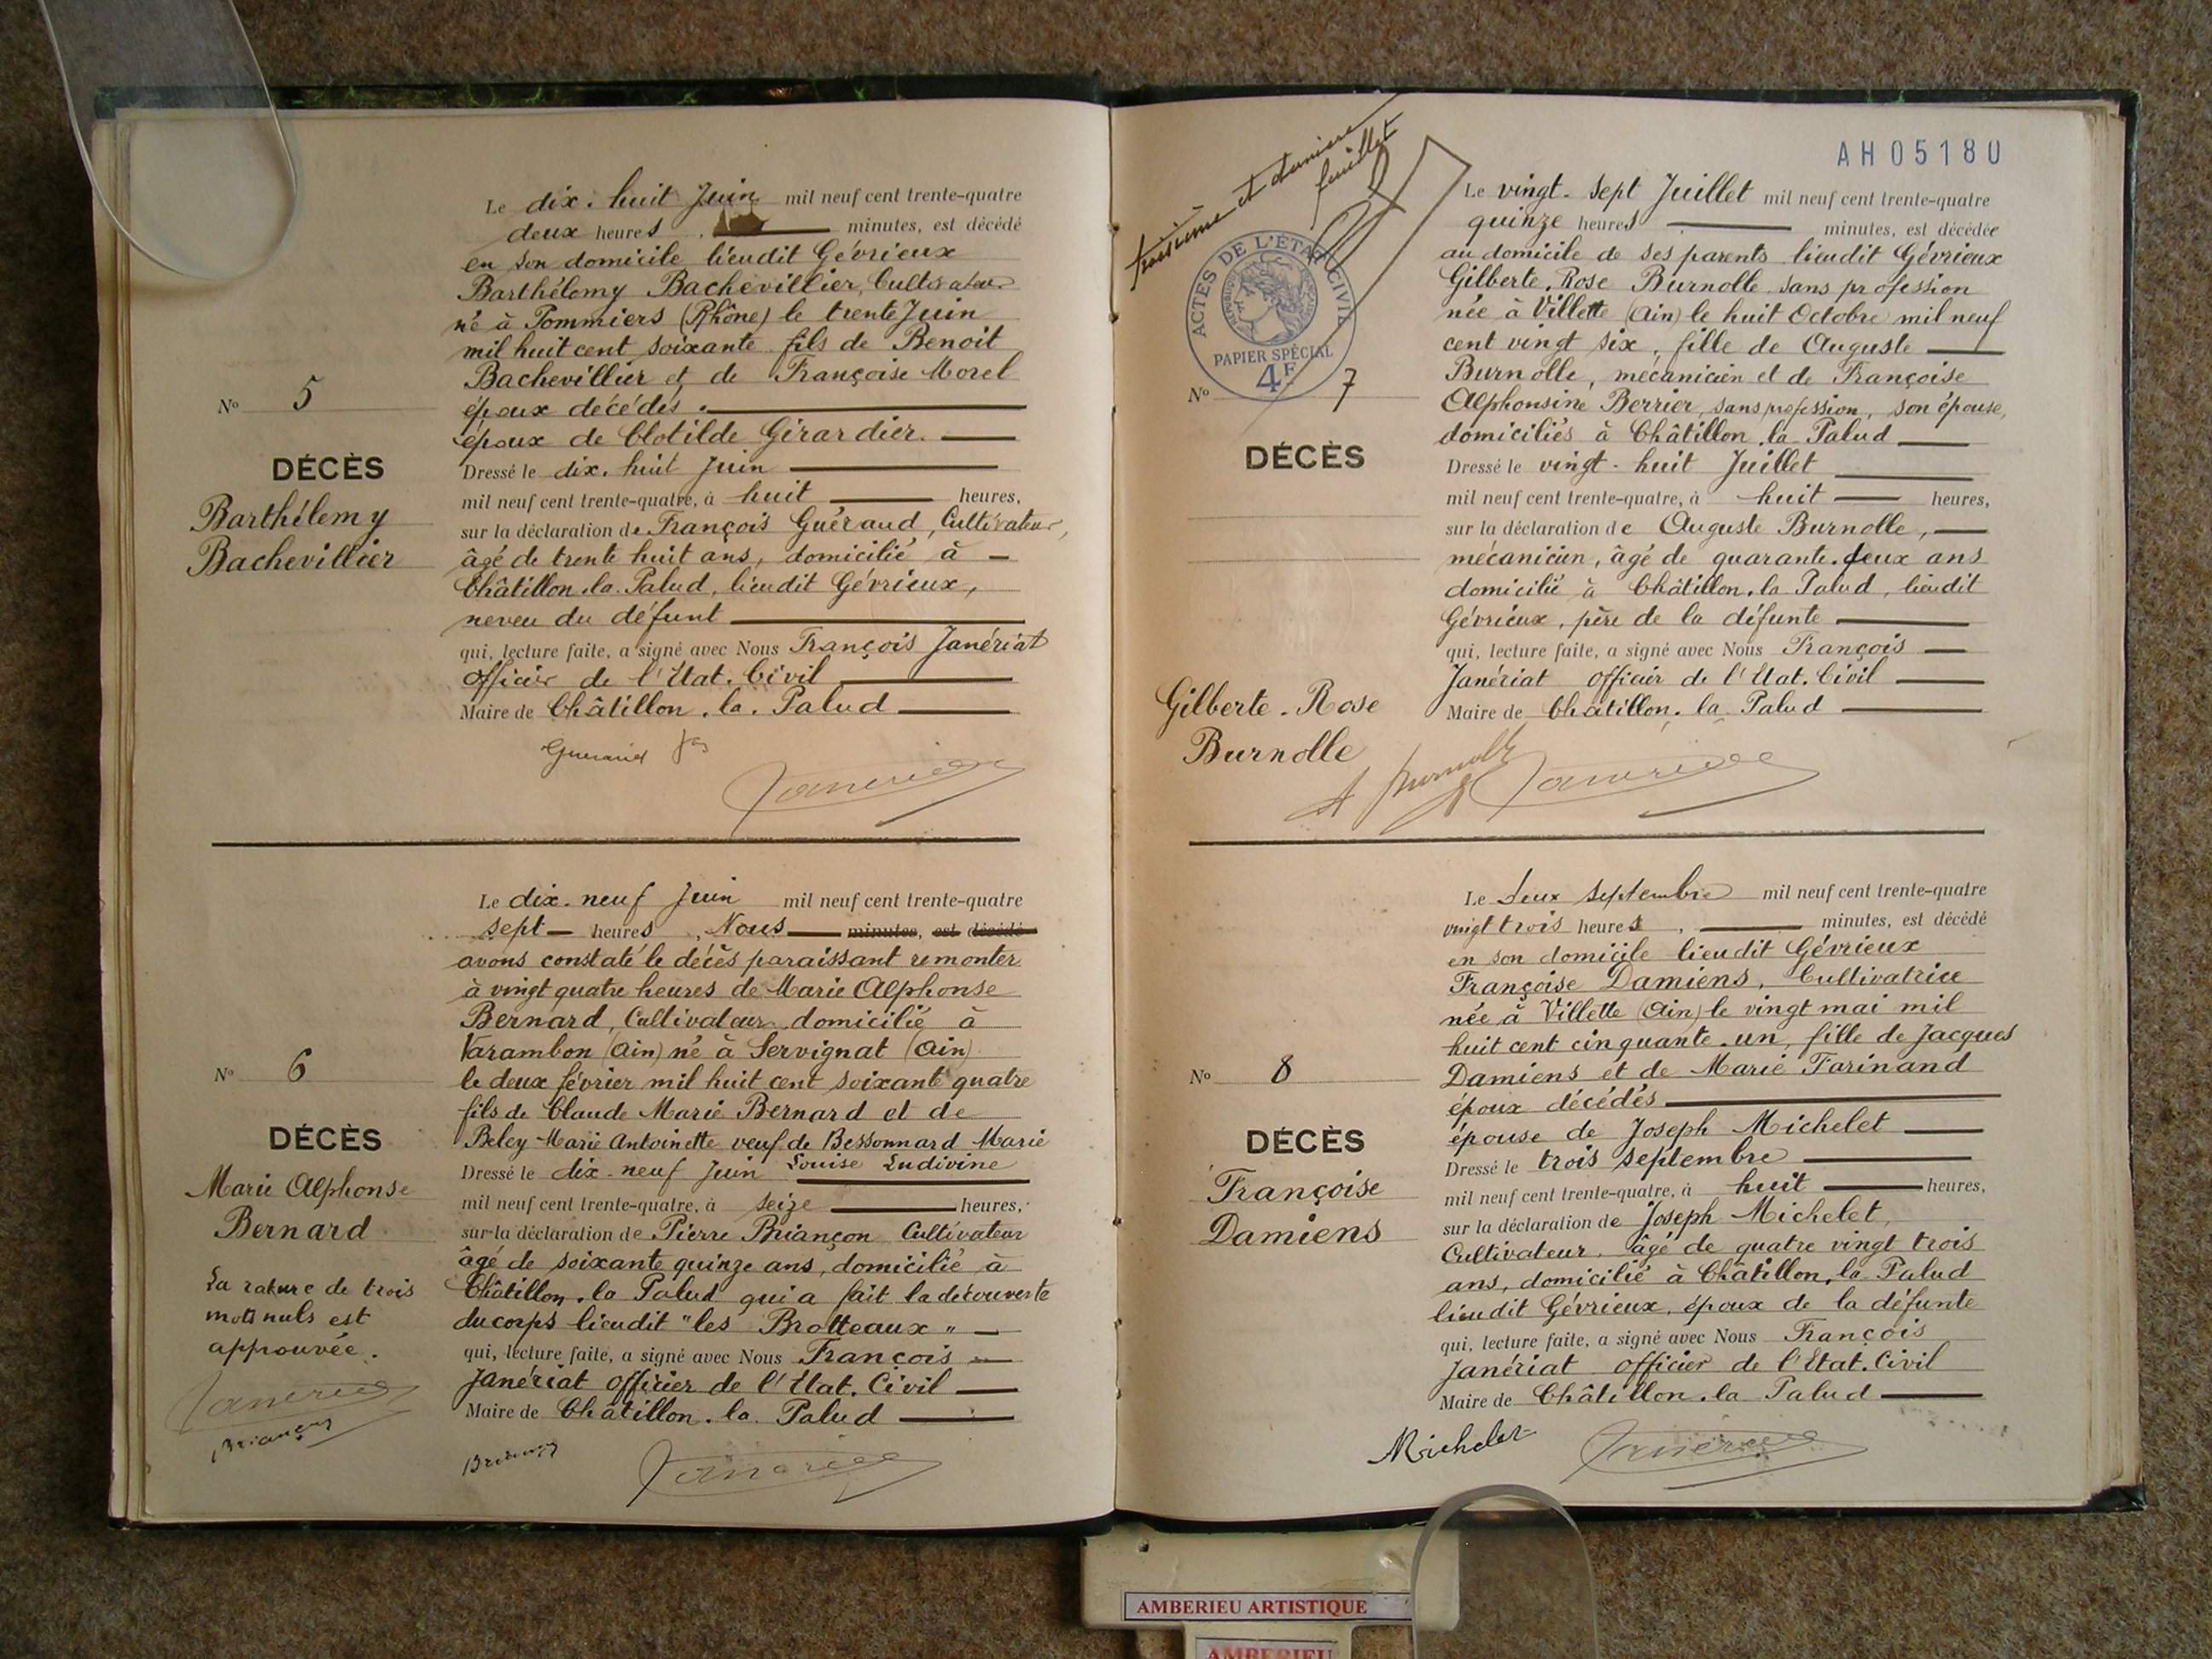 Le dix. huit Juin mil neuf cent trente-quatre
deux heures , minutes, est décédé
en son domicile lieudit Gévrieux
Barthélemy Bachevillier, Cultivateur
né à Pommiers (Rhône) le trente Juin
mil huit cent soixante fils de Benoit
Bachevillier et de Françoise Morel
époux décédés.
époux de Clotilde Girardier.
Dressé le dix. huit Juin
mil neuf cent trente-quatre, à huit heures,
sur la déclaration de François Guéraud, Cultivateur,
âgé de trente huit ans, domicilié à
Châtillon. la. Palud, lieudit Gévrieux,
neveu du défunt
qui, lecture faite, a signé avec Nous François Janériat
officier de l'Etat. Civil
Maire de Châtillon. la. Palud
No 5
DÉCÈS
Barthélemy
Bachevillier
Le dix. neuf Juin mil neuf cent trente-quatre
sept heures , Nous minutes, est décédé
avons constaté le décès paraissant remonter
à vingt quatre heures de Marie Alphonse
Bernard, Cultivateur, domicilié à
Varambon (Ain) né à Servignat (Ain)
le deux février mil huit cent soixante quatre
fils de Claude Marie Bernard et de
Beley Marie Antoinette veuf de Bessonnard Marie
Louise Ludivine
Dressé le dix-neuf Juin
mil neuf cent trente-quatre, à seize heures,
sur la déclaration de Pierre Briançon Cultivateur
âgé de soixante quinze ans, domicilié à
Châtillon. la Palud qui a fait la découverte
du corps lieudit "les Brotteaux"
qui, lecture faite, a signé avec Nous François
Janériat officier de l'Etat. Civil
Maire de Châtillon. la. Palud
No 6
DÉCÈS
Marie Alphonse
Bernard
La rature de trois
mots nuls est
approuvée.
Janériat
Briançon
Briançon Janériat
troisième et dernier
feuillet
AH05180
ACTES DE L'ÉTAT CIVIL
PAPIER SPÉCIAL
4F
Le vingt. sept Juillet mil neuf cent trente-quatre
quinze heures minutes, est décédée
au domicile de ses parents lieudit Gévrieux
Gilberte. Rose Burnolle sans profession
née à Villette (Ain) le huit Octobre mil neuf
cent vingt six, fille de Auguste
Burnolle, mécanicien et de Françoise
Alphonsine Berrier, sans profession, son épouse,
domiciliés à Châtillon. la. Palud
Dressé le vingt. huit Juillet
mil neuf cent trente-quatre, à huit heures,
sur la déclaration de Auguste Burnolle,
mécanicien, âgé de quarante. deux ans
domicilié à Châtillon. la Palud, lieudit
Gévrieux, père de la défunte
qui, lecture faite, a signé avec Nous François
Janériat officier de l'Etat. Civil
Maire de Châtillon. la Palud
No 7
DÉCÈS
Gilberte. Rose
Burnolle
A Burnolle Janériat
Le deux septembre mil neuf cent trente-quatre
vingt trois heures , minutes, est décédé
en son domicile lieudit Gévrieux
Françoise Damiens, Cultivatrice
née à Villette (Ain) le vingt mai mil
huit cent cinquante. un, fille de Jacques
Damiens et de Marie Farinand
époux décédés
épouse de Joseph Michelet
Dressé le trois septembre
mil neuf cent trente-quatre, à huit heures,
sur la déclaration de Joseph Michelet,
Cultivateur, âgé de quatre vingt trois
ans, domicilié à Châtillon. la Palud
lieudit Gévrieux, époux de la défunte
qui, lecture faite, a signé avec Nous François
Janériat officier de l'Etat. Civil
Maire de Châtillon. la Palud
No 8
DÉCÈS
Françoise
Damiens
Michelet Janériat
AMBERIEU ARTISTIQUE
AMBERIEU